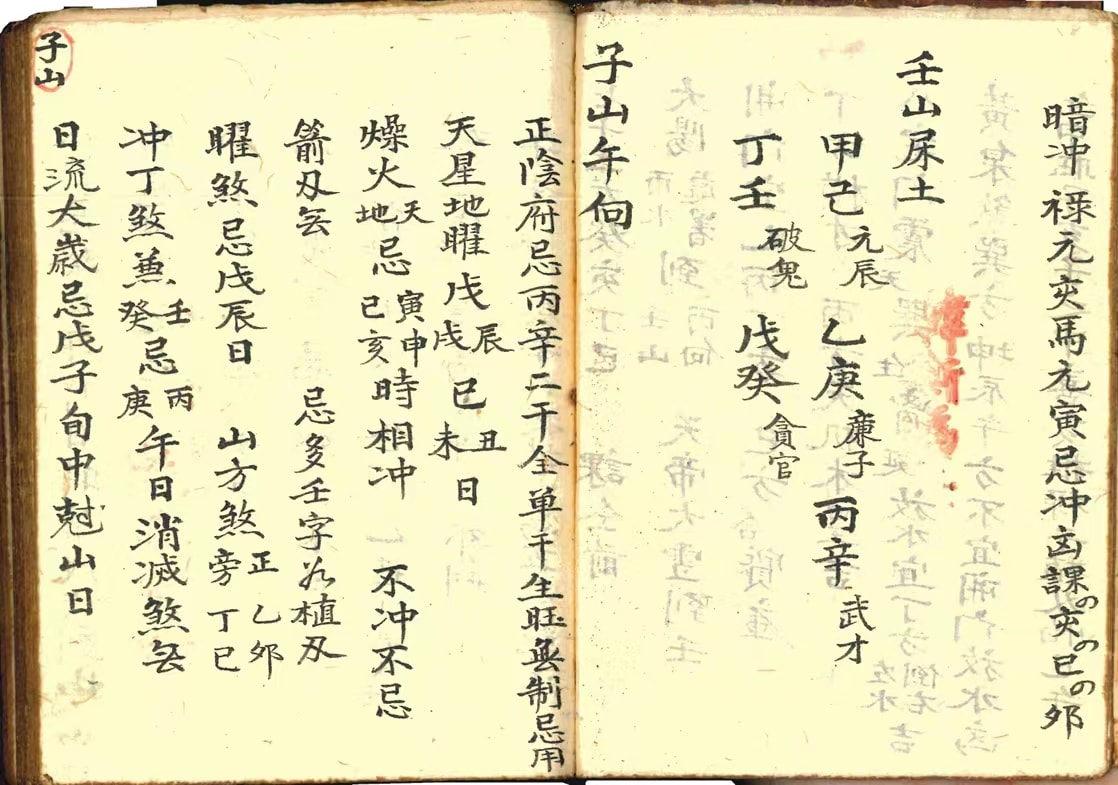 暗冲禄元亥馬元寅忌冲凶課の亥の巳の夘
壬山屎土
甲己元辰乙庚廉子丙辛武才
丁壬破鬼戊癸貪官
子山午向
正陰府忌丙辛二干全单干生旺無制忌用
天星地曜戊辰戊戌己丑己未日
燥火天地忌寅申己亥時相冲不冲不忌
箭刄旡忌多壬字为植刄
曜煞忌戊辰日山方煞正乙夘旁丁巳
冲丁煞兼壬癸忌丙庚午日消滅煞旡
日流大歳忌戊子旬中尅山日
子山